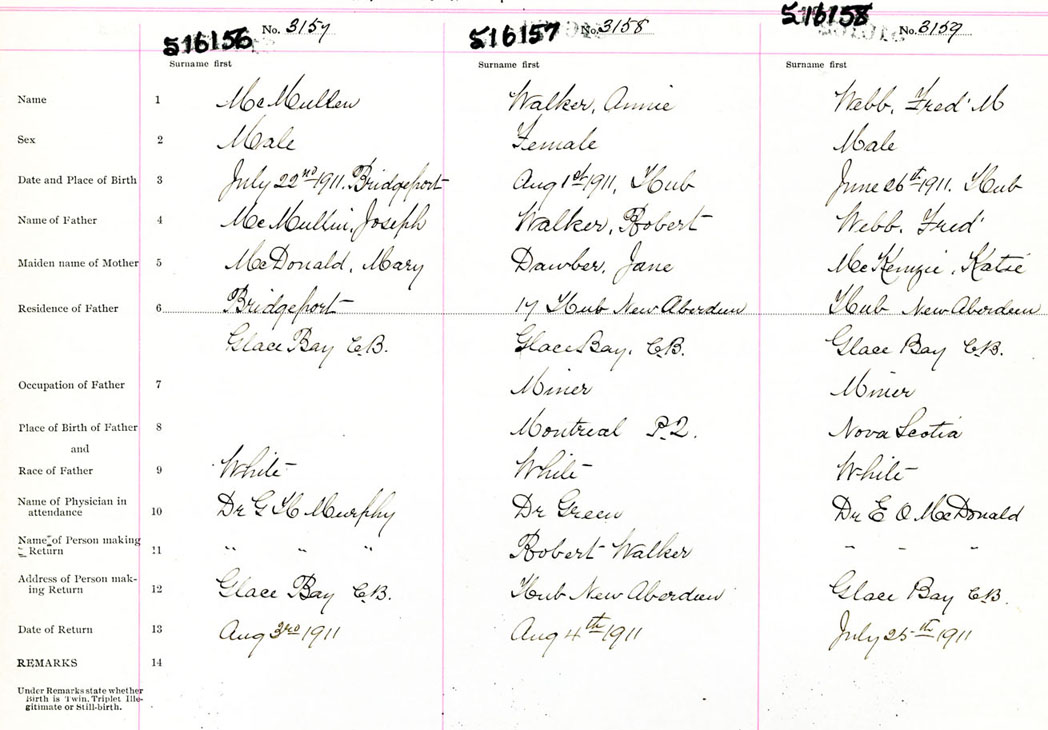 516156 No. 3157 516157 No. 3158 516158 No. 3159
Surname first Surname first Surname first
Name 1 McMullen Walker, Annie Webb, Fred' M
Sex 2 Male Female Male
Date and Place of Birth 3 July 22nd 1911. Bridgeport Aug 1st 1911, Hub June 26th 1911. Hub
Name of Father 4 McMullin, Joseph Walker, Robert Webb, Fred'
Maiden name of Mother 5 McDonald, Mary Dawber, Jane McKenzie, Katie
Residence of Father 6 Bridgeport 17 Hub New Aberdeen Hub New Aberdeen
Glace Bay C.B. Glace Bay, C.B. Glace Bay C.B.
Occupation of Father 7 Miner Miner
Place of Birth of Father 8 Montreal P.Q. Nova Scotia
and
Race of Father 9 White White White
Name of Physician in
attendance 10 Dr G H Murphy Dr Green Dr E O McDonald
Name of Person making
Return 11 " " " Robert Walker " " "
Address of Person mak-
ing Return 12 Glace Bay C.B. Hub New Aberdeen Glace Bay C.B.
Date of Return 13 Aug 3rd 1911 Aug 4th 1911 July 25th 1911
REMARKS 14
Under Remarks state whether
Birth is Twin, Triplet Ille-
gitimate or Still-birth.